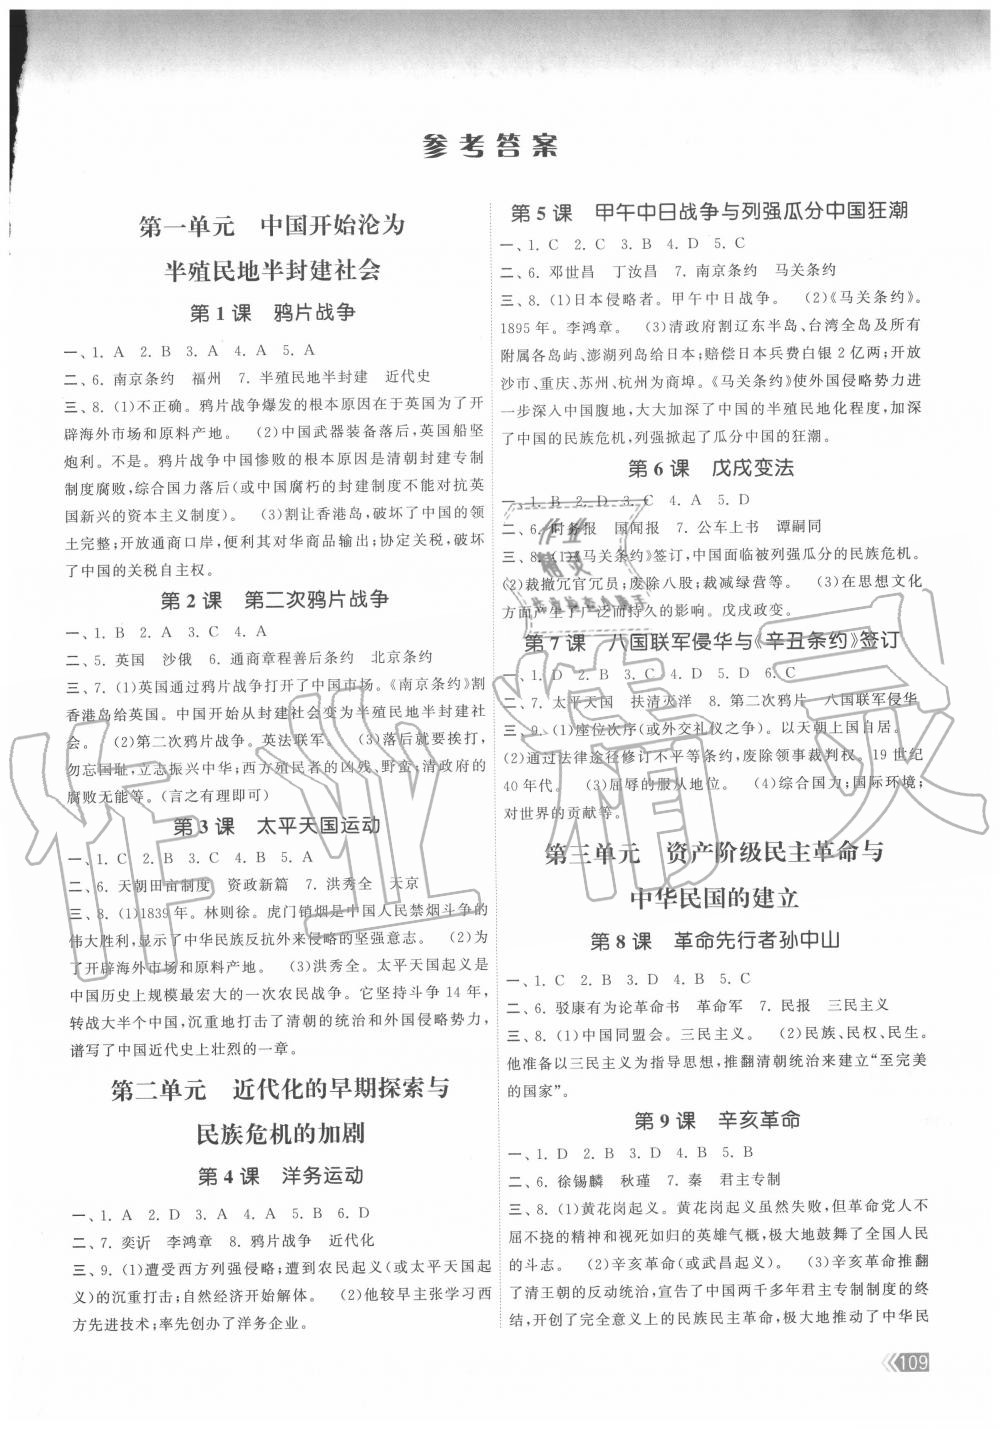 参考答案
第一单元　中国开始沦为
半殖民地半封建社会
第 1 课　鸦片战争
一、1. A　2. B　3. A　4. A　5. A
二、6. 南京条约　福州　7. 半殖民地半封建　近代史
三、8. (1)不正确。鸦片战争爆发的根本原因在于英国为了开
辟海外市场和原料产地。　(2)中国武器装备落后,英国船坚
炮利。不是。鸦片战争中国惨败的根本原因是清朝封建专制
制度腐败,综合国力落后(或中国腐朽的封建制度不能对抗英
国新兴的资本主义制度)。　(3)割让香港岛,破坏了中国的领
土完整;开放通商口岸,便利其对华商品输出;协定关税,破坏
了中国的关税自主权。
第 2 课　第二次鸦片战争
一、1. B　2. A　3. C　4. A
二、5. 英国　沙俄　6. 通商章程善后条约　北京条约
三、7. (1)英国通过鸦片战争打开了中国市场。《南京条约》割
香港岛给英国。中国开始从封建社会变为半殖民地半封建社
会。　(2)第二次鸦片战争。英法联军。　(3)落后就要挨打,
勿忘国耻,立志振兴中华;西方殖民者的凶残、野蛮;清政府的
腐败无能等。(言之有理即可)
第 3 课　太平天国运动
一、1. C　2. C　3. A　4. B　5. C
二、6. 天朝田亩制度　资政新篇　7. 洪秀全　天京
三、8. (1)1839年。林则徐。虎门销烟是中国人民禁烟斗争的
伟大胜利,显示了中华民族反抗外来侵略的坚强意志。　(2)为
了开辟海外市场和原料产地。　(3)洪秀全。太平天国起义是
中国历史上规模最宏大的一次农民战争。它坚持斗争 14 年,
转战大半个中国,沉重地打击了清朝的统治和外国侵略势力,
谱写了中国近代史上壮烈的一章。
第二单元　近代化的早期探索与
民族危机的加剧
第 4 课　洋务运动
一、1. A　2. D　3. A　4. A　5. B　6. D
二、7. 奕䜣　李鸿章　8. 鸦片战争　近代化
三、9. (1)遭受西方列强侵略;遭到农民起义(或太平天国起
义)的沉重打击;自然经济开始解体。　(2)他较早主张学习西
方先进技术;率先创办了洋务企业。
第 5 课　甲午中日战争与列强瓜分中国狂潮
一、1. C　2. C　3. B　4. D　5. C
二、6. 邓世昌　丁汝昌　7. 南京条约　马关条约
三、8. (1)日本侵略者。甲午中日战争。　(2)《马关条约》。
1895 年。李鸿章。　(3)清政府割辽东半岛、台湾全岛及所有
附属各岛屿、澎湖列岛给日本;赔偿日本兵费白银 2 亿两;开放
沙市、重庆、苏州、杭州为商埠。《马关条约》使外国侵略势力进
一步深入中国腹地,大大加深了中国的半殖民地化程度,加深
了中国的民族危机,列强掀起了瓜分中国的狂潮。
第 6 课　戊戌变法
一、1. B　2. D　3. C　4. A　5. D
二、6. 时务报　国闻报　7. 公车上书　谭嗣同
三、8. (1)《马关条约》签订,中国面临被列强瓜分的民族危机。
(2)裁撤冗官冗员;废除八股;裁减绿营等。　(3)在思想文化
方面产生了广泛而持久的影响。戊戌政变。
第 7 课　八国联军侵华与《辛丑条约》签订
一、1. D　2. B　3. C　4. A　5. C　6. D
二、7. 太平天国　扶清灭洋　8. 第二次鸦片　八国联军侵华
三、9. (1)座位次序(或外交礼仪之争)。以天朝上国自居。
(2)通过法律途径修订不平等条约,废除领事裁判权。19 世纪
40 年代。　(3)屈辱的服从地位。　(4)综合国力;国际环境;
对世界的贡献等。
第三单元　资产阶级民主革命与
中华民国的建立
第 8 课　革命先行者孙中山
一、1. C　2. B　3. D　4. B　5. C
二、6. 驳康有为论革命书　革命军　7. 民报　三民主义
三、8. (1)中国同盟会。三民主义。　(2)民族、民权、民生。
他准备以三民主义为指导思想,推翻清朝统治来建立“至完美
的国家”。
第 9 课　辛亥革命
一、1. D　2. B　3. D　4. B　5. B
二、6. 徐锡麟　秋瑾　7. 秦　君主专制
三、8. (1)黄花岗起义。黄花岗起义虽然失败,但革命党人不
屈不挠的精神和视死如归的英雄气概,极大地鼓舞了全国人民
的斗志。　(2)辛亥革命(或武昌起义)。　(3)辛亥革命推翻
了清王朝的反动统治,宣告了中国两千多年君主专制制度的终
结,开创了完全意义上的民族民主革命,极大地推动了中华民
109
作业精灵